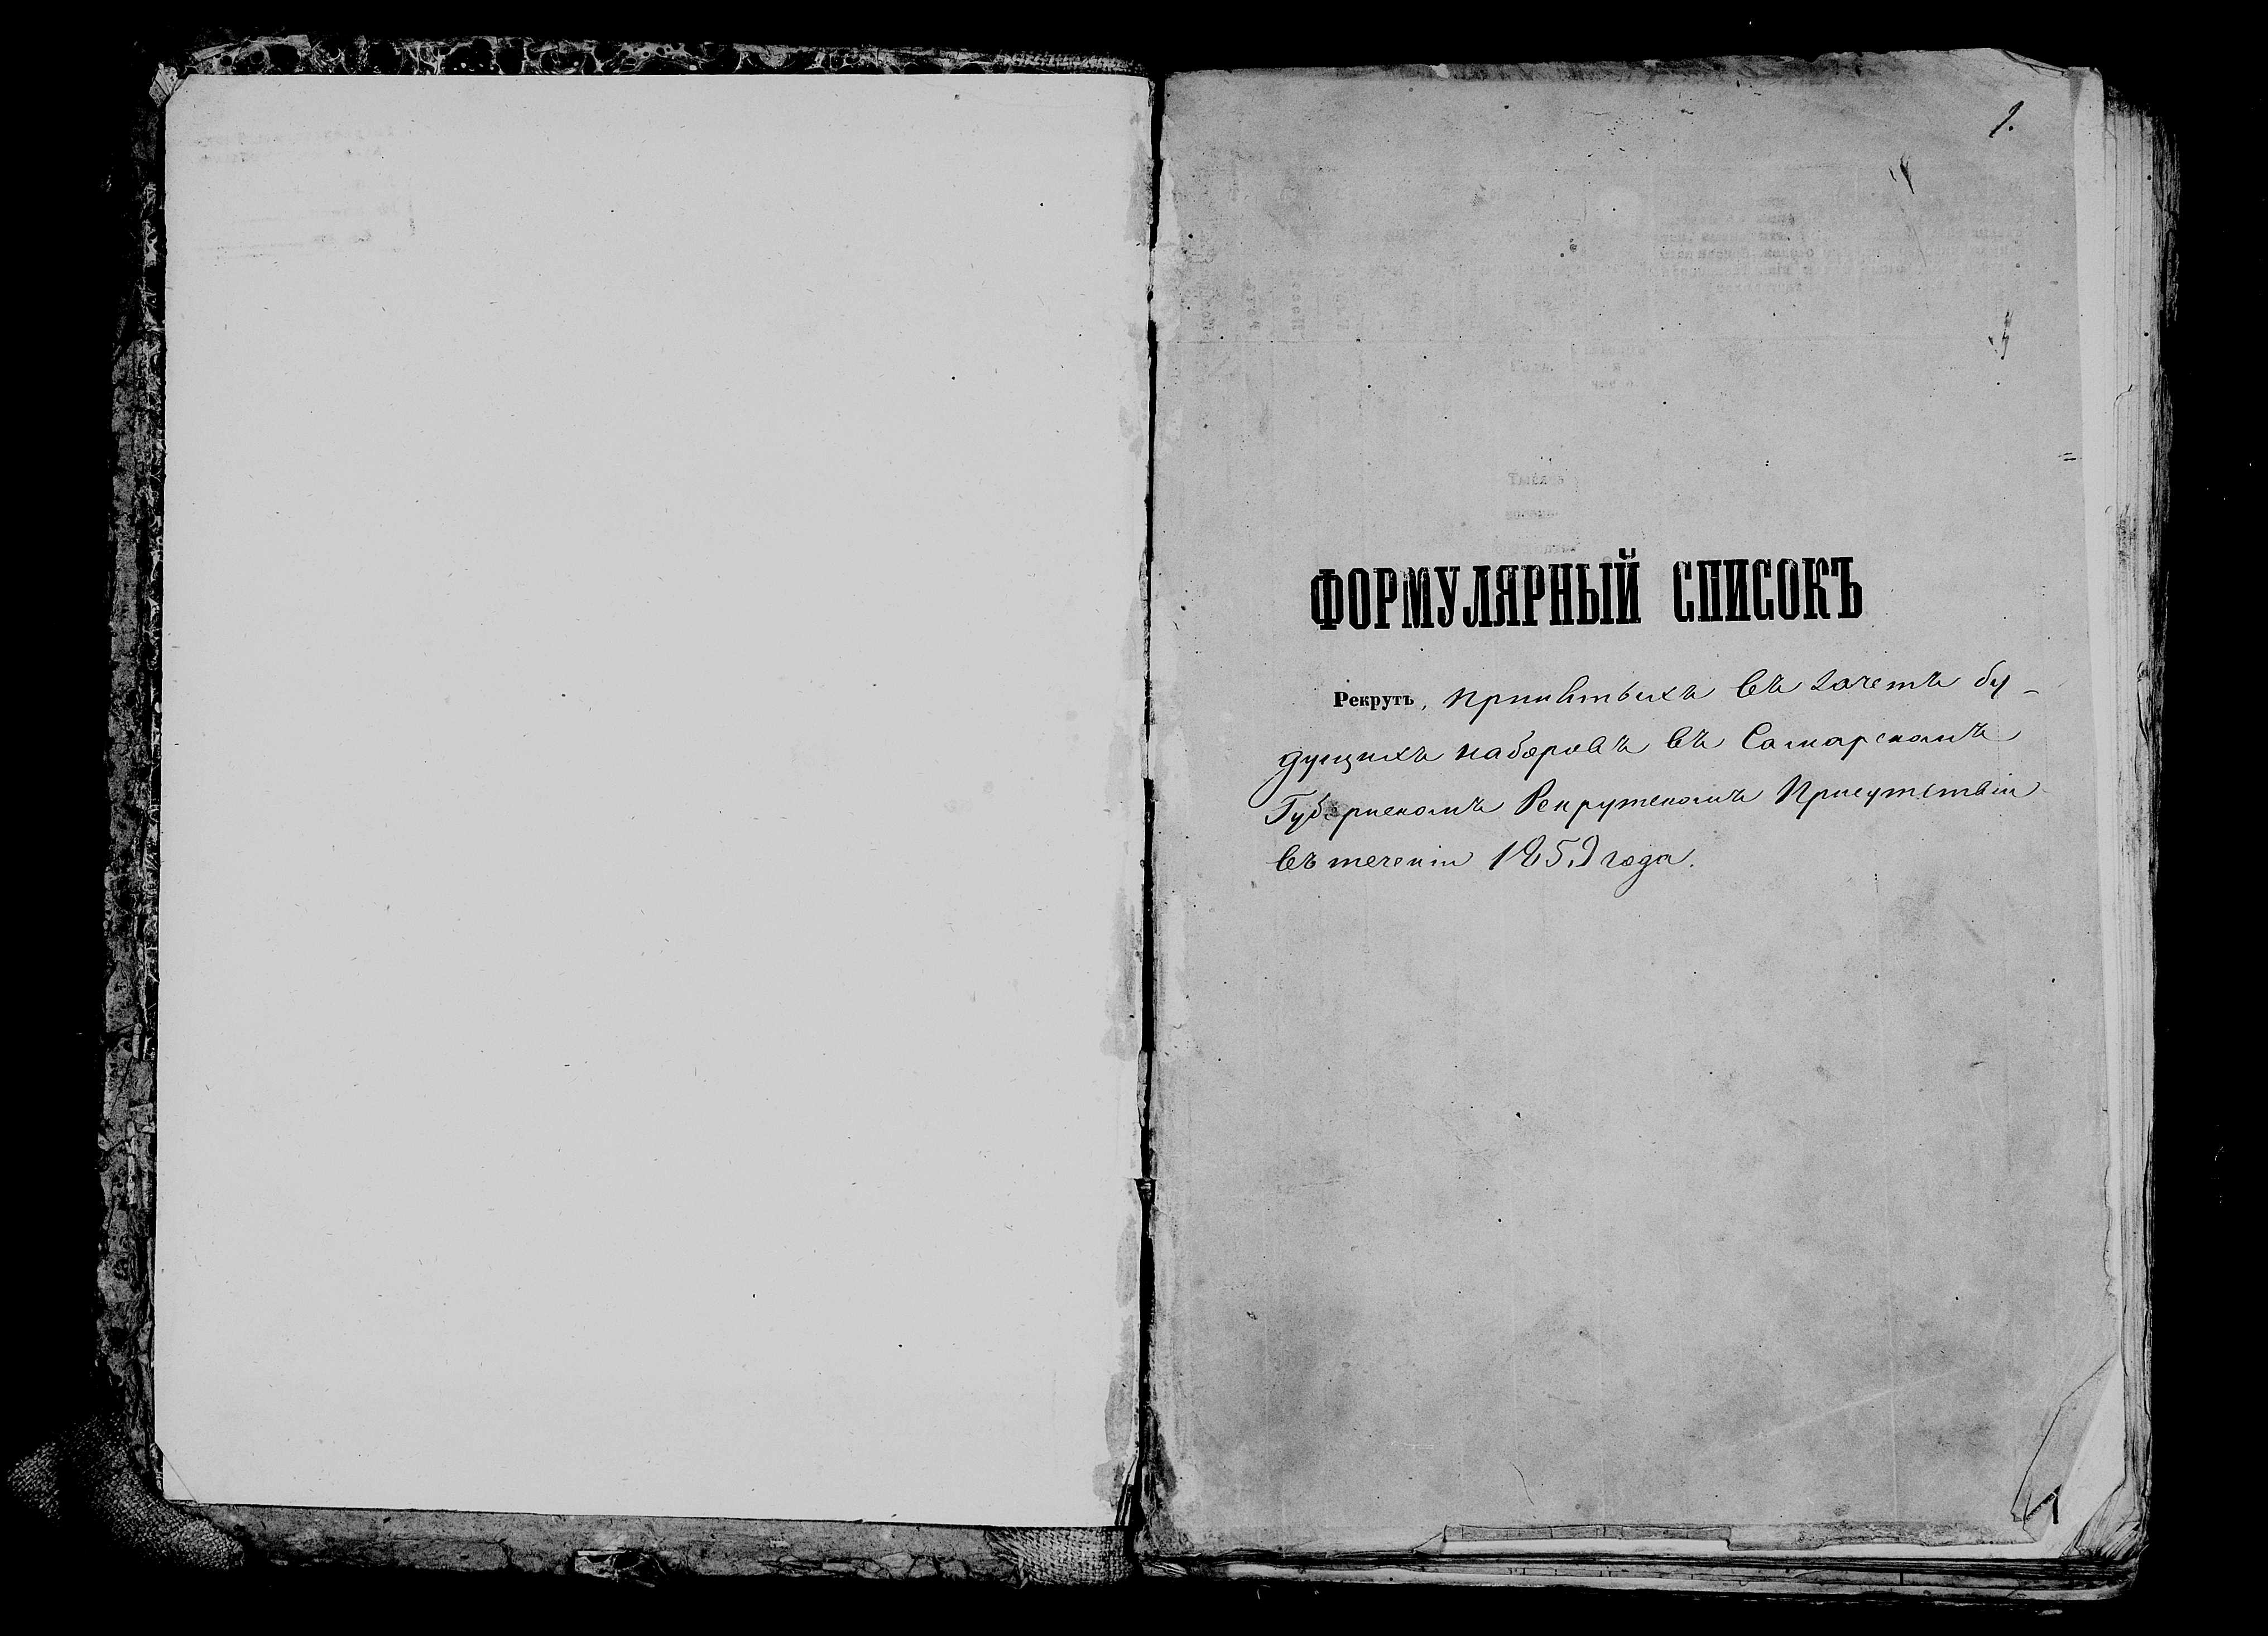 1.
ФОРМУЛЯРНЫЙ СПИСОКЪ
Рекрутъ, принятыхъ въ зачетъ бу-
дущихъ наборовъ въ Самарскомъ
Губернскомъ Рекрутскомъ Присутствіи
въ теченіи 1859 года.